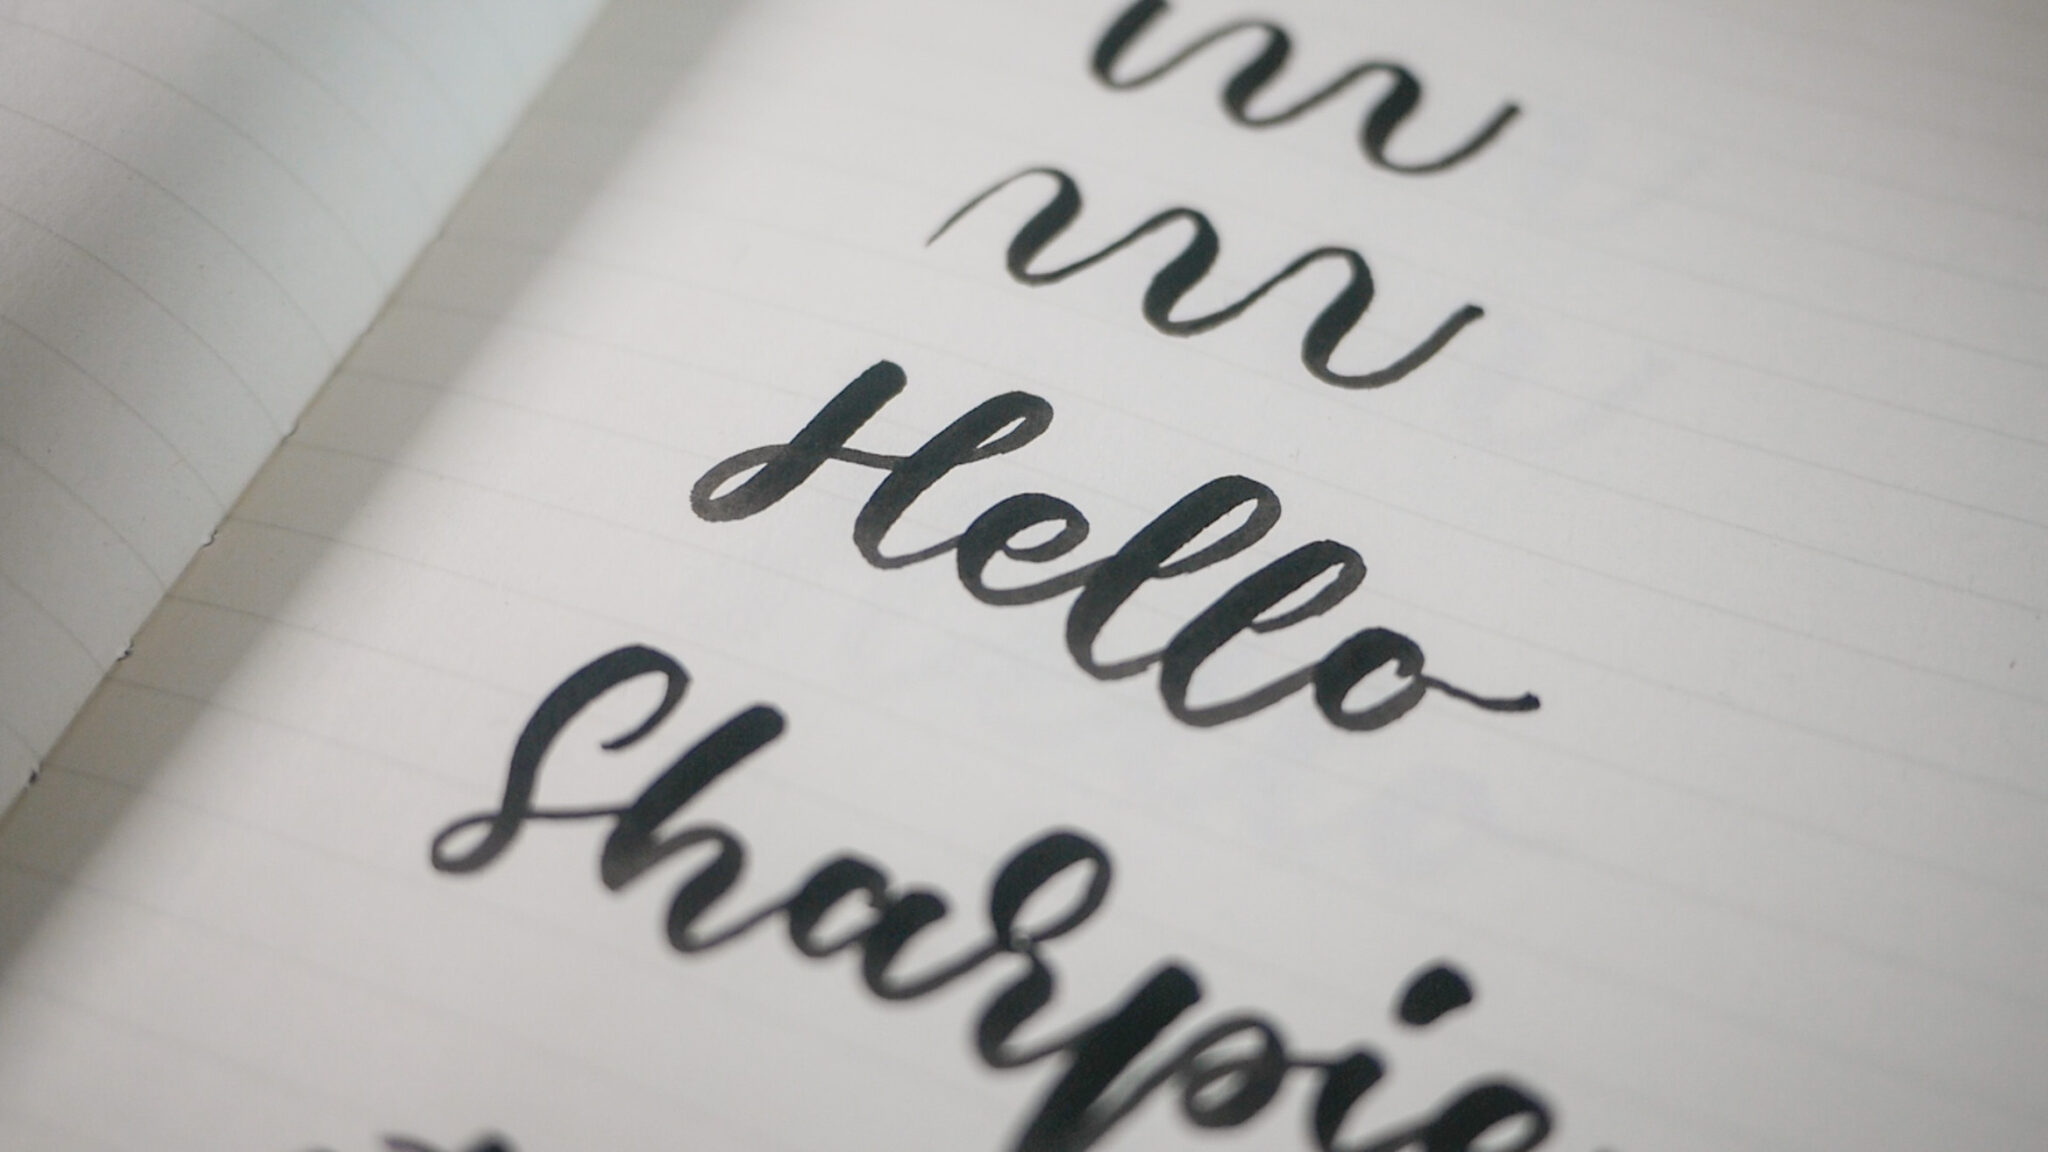 Hello
Sharpie